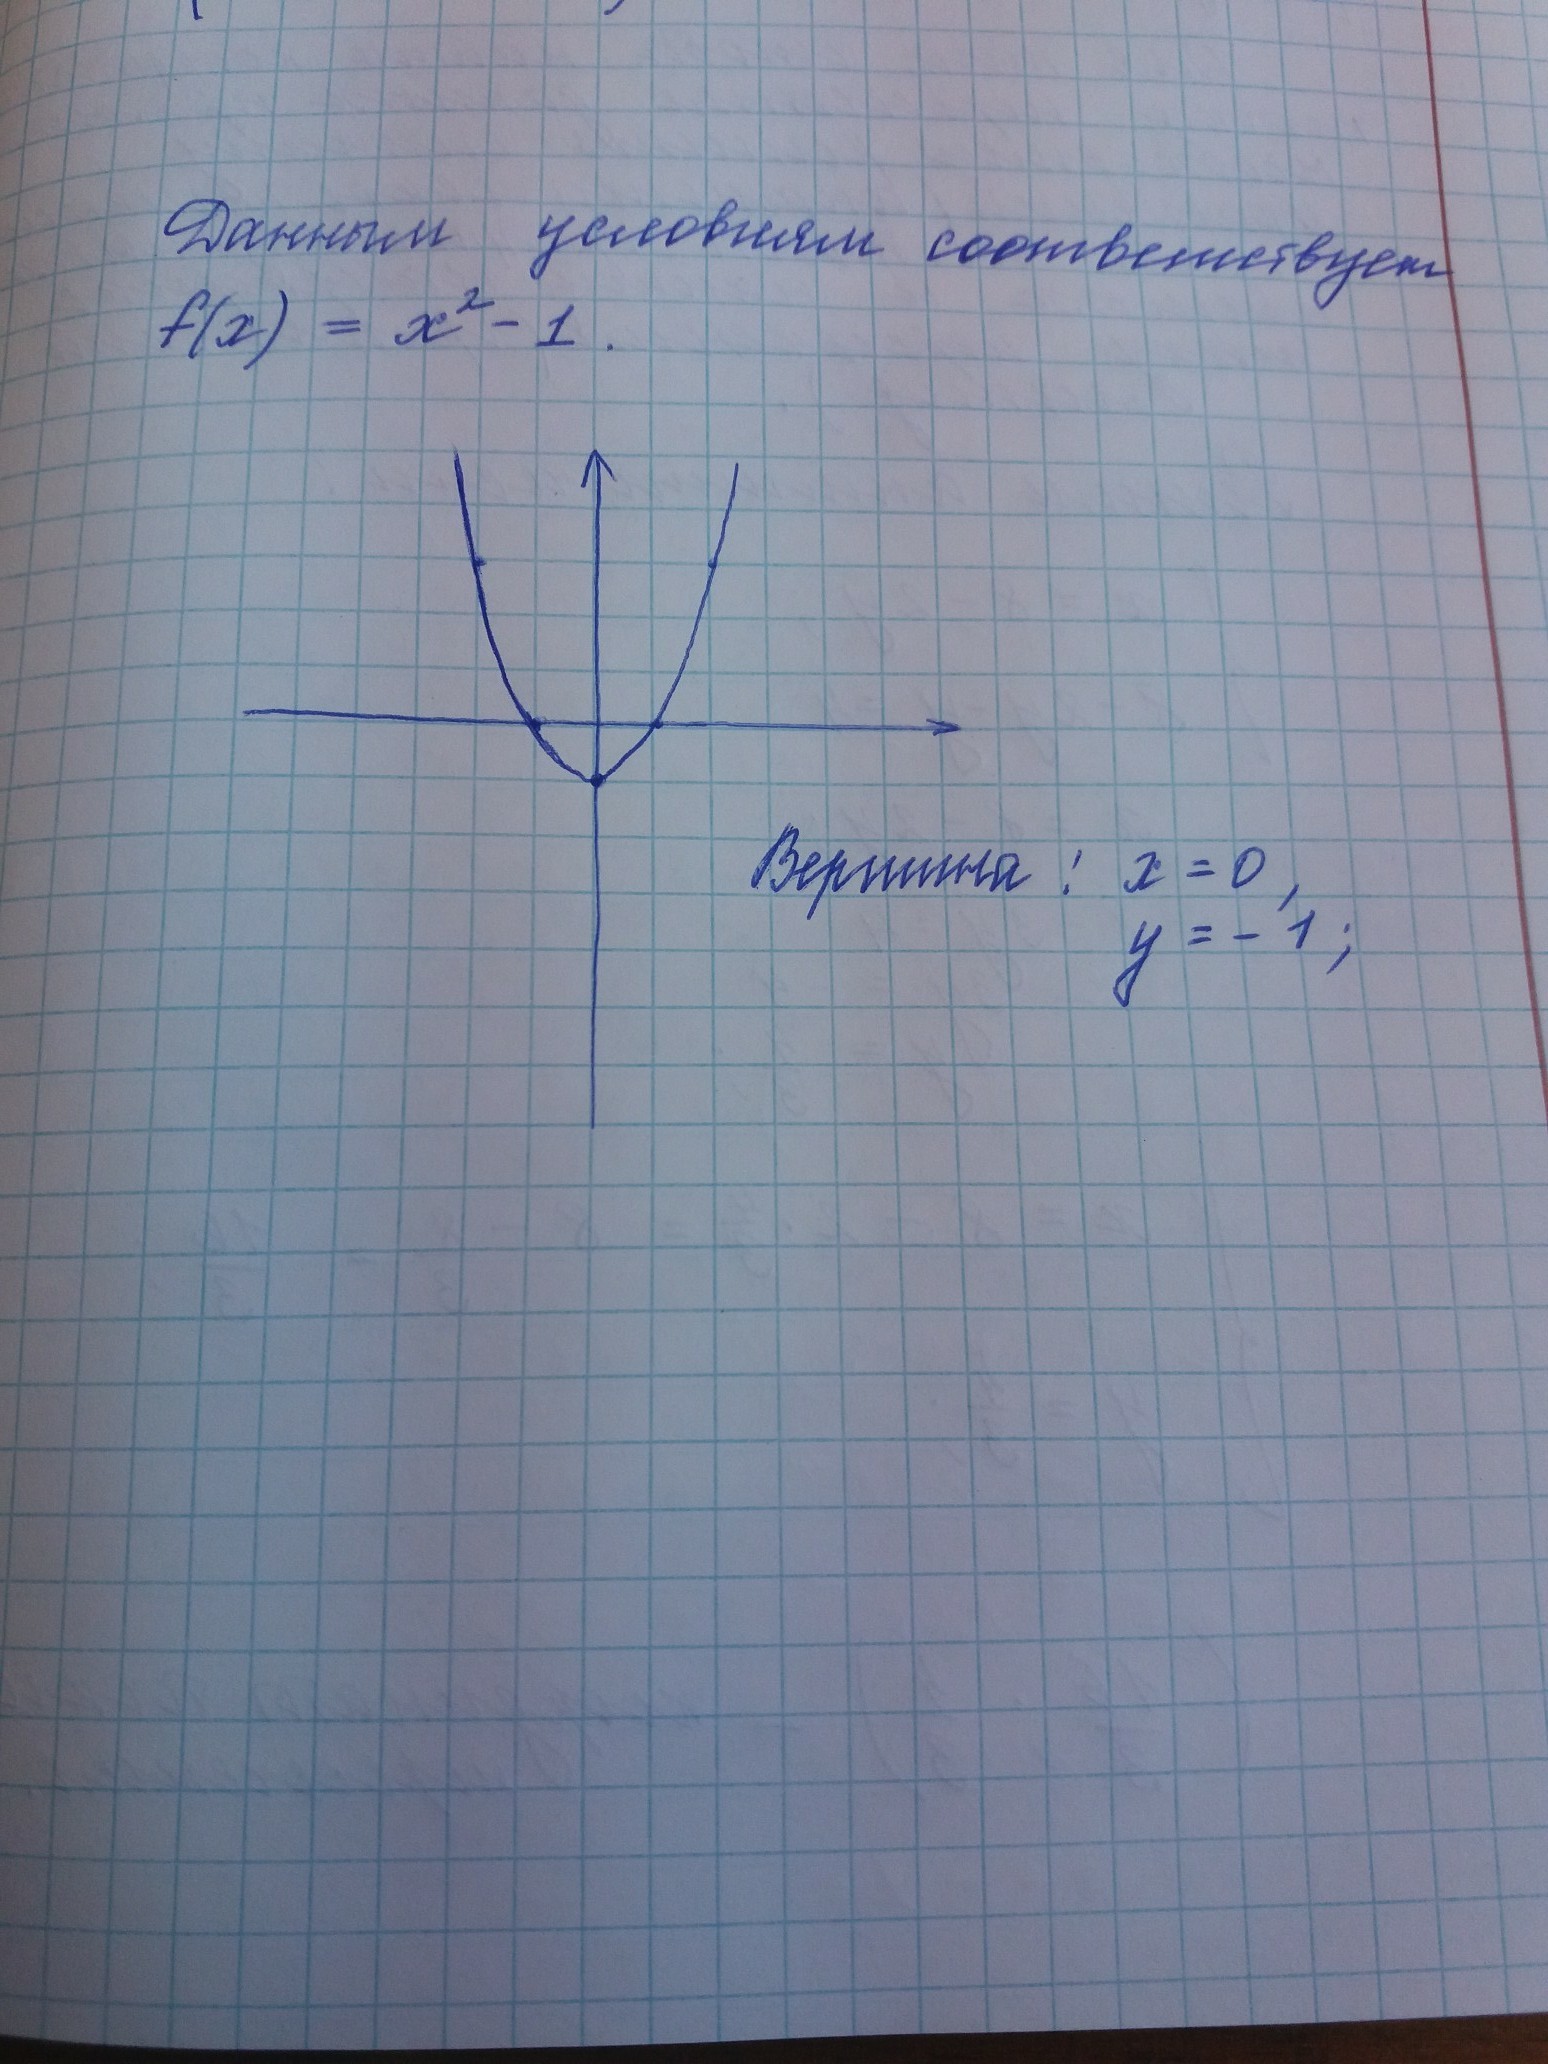 Данным условиям соответствует
f(x) = x² - 1.
Вершина: x = 0,
y = - 1;